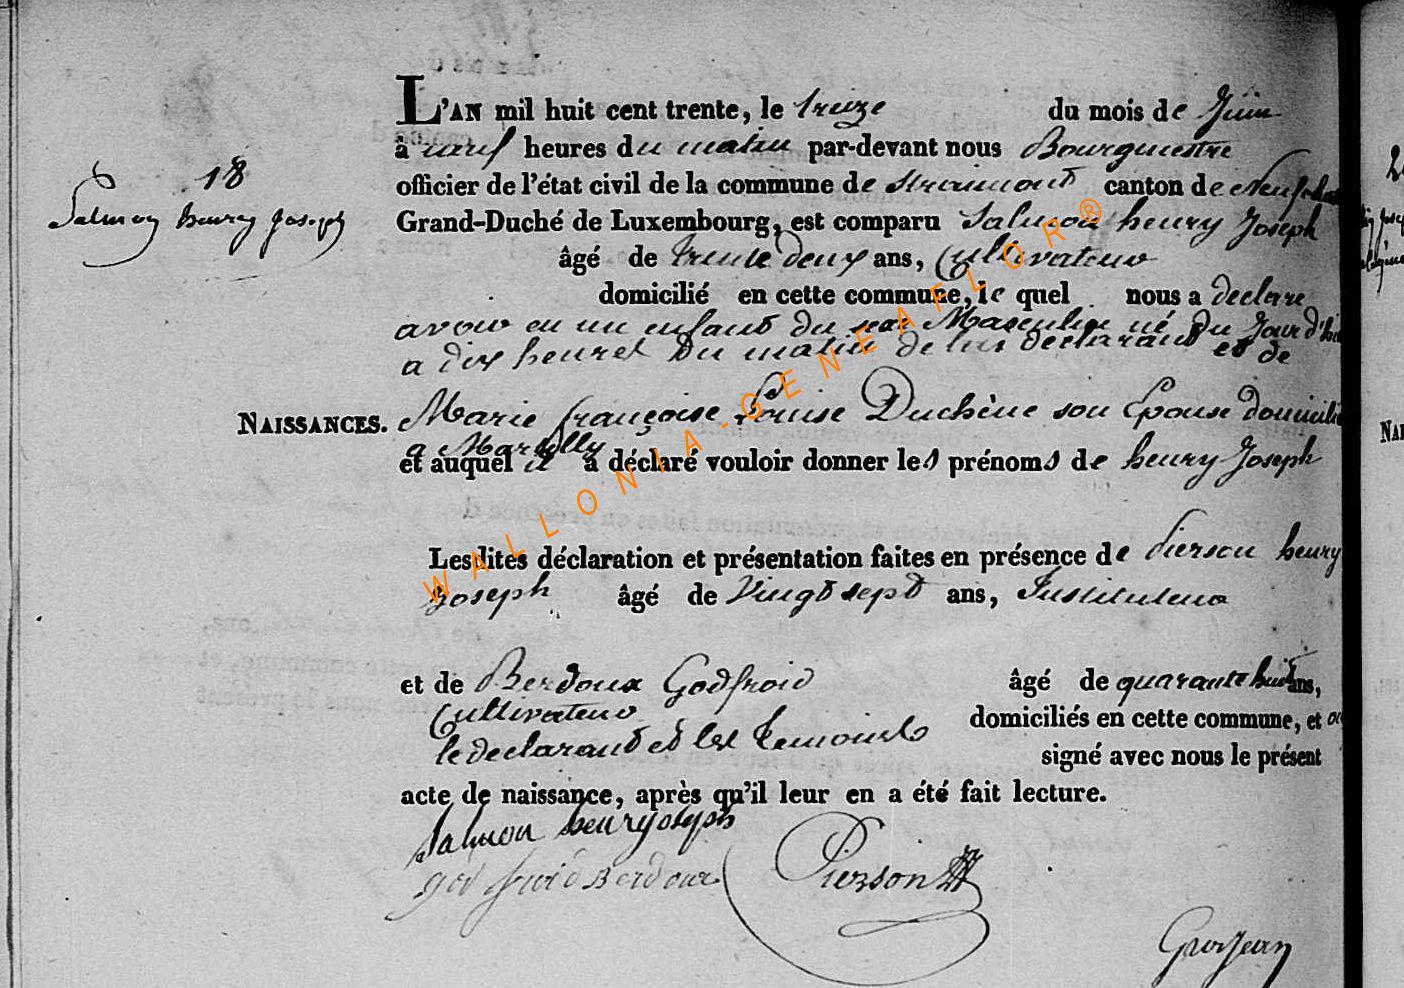 18
Salmon henry Joseph
L'AN mil huit cent trente, le treize du mois de Juin
à neuf heures du matin par-devant nous Bourgmestre
officier de l'état civil de la commune de Straimont canton de
Grand-Duché de Luxembourg, est comparu Salmon henry Joseph
âgé de trente deux ans, Cultivateur
domicilié en cette commune, le quel nous a declare
avoir eu un enfant du sexe Masculin né du Jour d'
a dix heures du matin de lui declarant et de
NAISSANCES. Marie françoise Louise Duchêne son Epouse
a Martilly
et auquel il a déclaré vouloir donner les prénoms de henry Joseph
Lesdites déclaration et présentation faites en présence de Pierson henry
Joseph âgé de Vingt sept ans, Instituteur
et de Berdoux Godfroid âgé de quarante huit ans,
Cultivateur domiciliés en cette commune, et
le declarant et les temoins signé avec nous le présent
acte de naissance, après qu'il leur en a été fait lecture.
Salmon henry joseph
godfroid Berdoux Pierson
Grosjean
WALLONIA-GENEAFLOR®